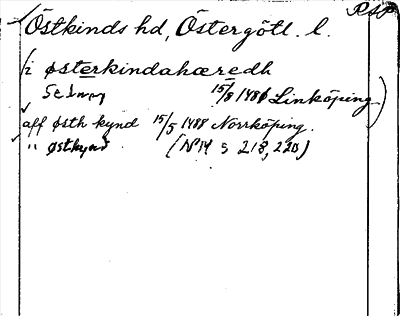 RAP
Östkinds hd, Östergötl. l.
i østerkindahæredh
15/8 1486 Linköping
aff østh kynd 15/5 1488 Norrköping.
" østkynd (NMH s 218, 220)